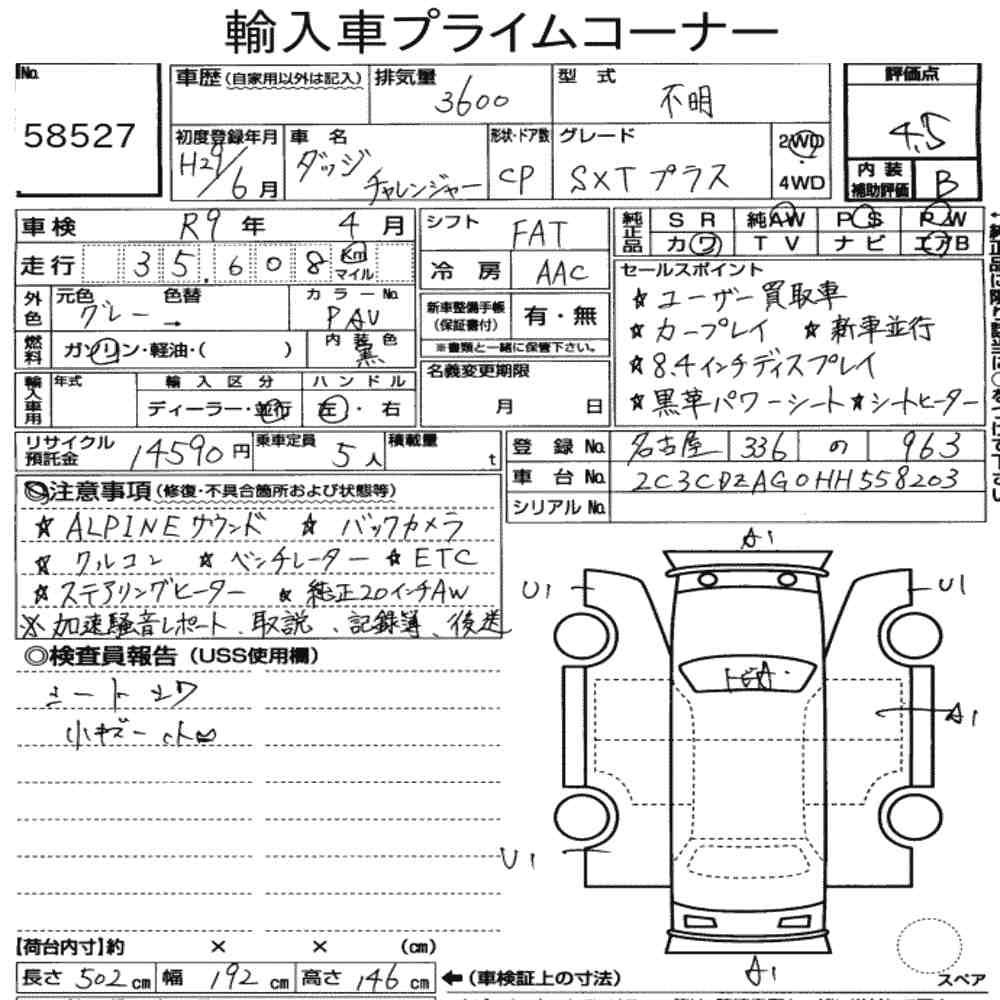 輸入車プライムコーナー
No.
58527
車歴(自家用以外は記入)
排気量
3600
型 式
不明
評価点
4.5
初度登録年月
H29/6月
車 名
ダッジ
チャレンジャー
形状・ドア数
CP
グレード
SXTプラス
2WD
4WD
内装
補助評価
B
車検 R9年 4月
走行 35,608 Km
マイル
シフト FAT
冷房 AAC
純正品 SR 純AW PS PW
カワ TV ナビ エアB
外色 元色 色替 カラーNo.
グレー → PAU
燃料 ガソリン・軽油・( ) 内装色
黒
新車整備手帳
(保証書付)
有・無
※書類と一緒に保管下さい。
セールスポイント
☆ユーザー買取車
☆カープレイ ☆新車並行
☆8.4インチディスプレイ
☆黒革パワーシート☆シートヒーター
輸入車用 年式 輸入区分 ハンドル
ディーラー・並行 左・右
名義変更期限
月 日
リサイクル
預託金 14590円 乗車定員 5人 積載量 t
登録No. 名古屋 336 の 963
車台No. 2C3CDZAG0HH558203
シリアルNo.
◎注意事項(修復・不具合箇所および状態等)
☆ALPINEサウンド ☆バックカメラ
☆クルコン ☆ベンチレーター ☆ETC
☆ステアリングヒーター ☆純正20インチAW
※加速騒音レポート、取説、記録簿、後送
◎検査員報告(USS使用欄)
小キズ
A1
U1
U1
A1
U1
A1
【荷台内寸】約 × × (cm)
長さ 502cm 幅 192cm 高さ 146cm
←(車検証上の寸法)
スペア